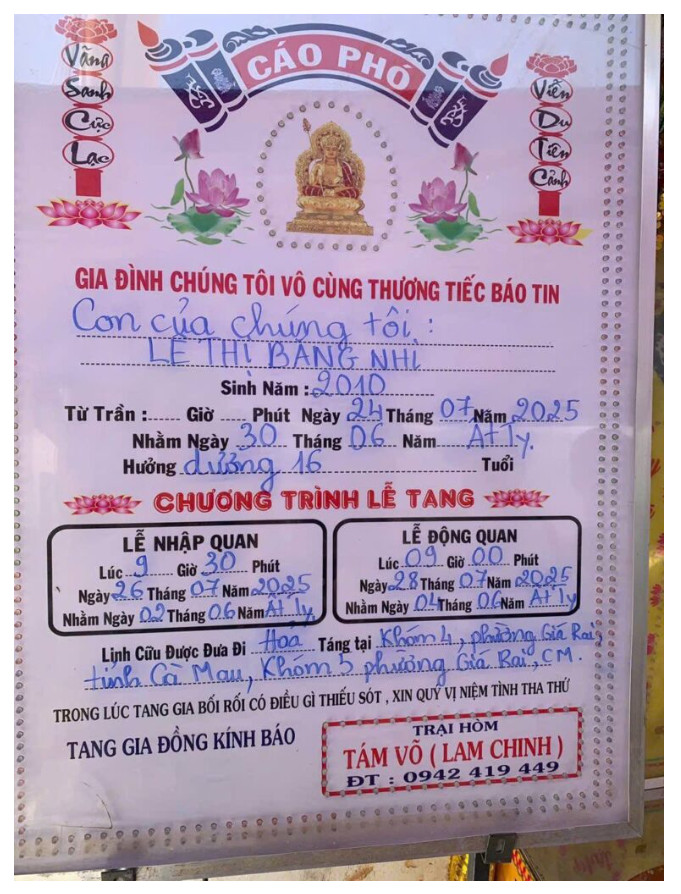 CÁO PHÓ
Vãng
Sanh
Cực
Lạc
Viễn
Du
Tiên
Cảnh
GIA ĐÌNH CHÚNG TÔI VÔ CÙNG THƯƠNG TIẾC BÁO TIN
Con của chúng tôi :
LÊ THỊ BĂNG NHI
Sinh Năm : 2010
Từ Trần : ...... Giờ ..... Phút Ngày 24 Tháng 07 Năm 2025
Nhằm Ngày 30 Tháng 06 Năm Ất Tỵ.
Hưởng dương 16 Tuổi
CHƯƠNG TRÌNH LỄ TANG
LỄ NHẬP QUAN
Lúc 9 Giờ 30 Phút
Ngày 26 Tháng 07 Năm 2025
Nhằm Ngày 02 Tháng 06 Năm Ất Tỵ
LỄ ĐỘNG QUAN
Lúc 09 Giờ 00 Phút
Ngày 28 Tháng 07 Năm 2025
Nhằm Ngày 04 Tháng 06 Năm Ất Tỵ
Linh Cữu Được Đưa Đi Hoả Táng tại Khóm 4, phường Giá Rai,
tỉnh Cà Mau, Khóm 5 phường Giá Rai, CM.
TRONG LÚC TANG GIA BỐI RỐI CÓ ĐIỀU GÌ THIẾU SÓT , XIN QUÝ VỊ NIỆM TÌNH THA THỨ
TANG GIA ĐỒNG KÍNH BÁO
TRẠI HÒM
TÁM VÕ ( LAM CHINH )
ĐT : 0942 419 449